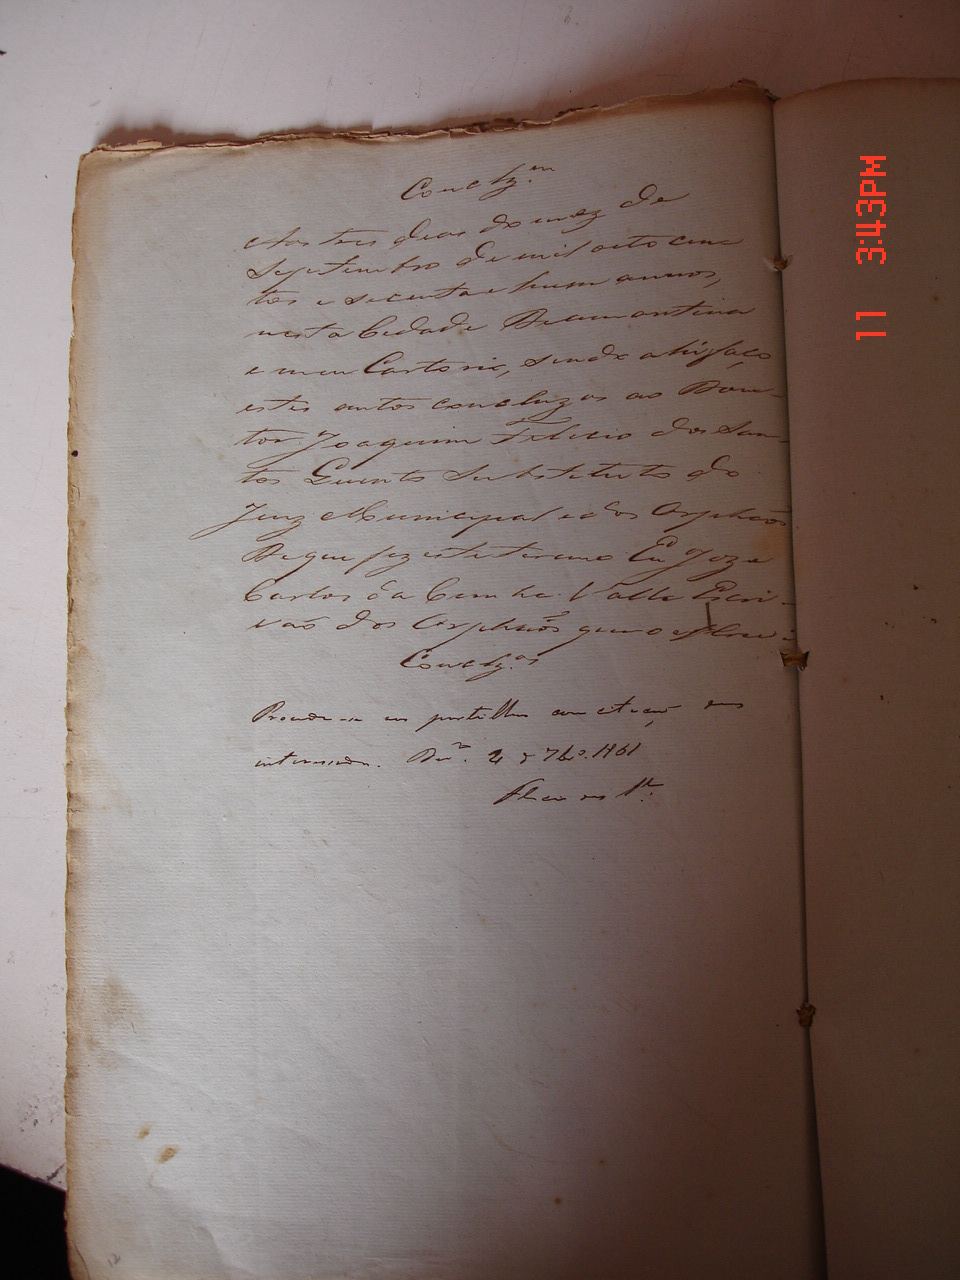 Conclz.am
Aos tres dias do mez de
Septembro de mil oito cen-
tos e secenta e hum annos,
nesta Cidade Diamantina
e meu Cartorio, sendo ahi faço
estes autos concluzos ao Dou-
tor Joaquim Felicio dos San-
tos Quinto Substituto do
Juiz Municipal e dos Orphãos
De que fiz este termo Eu Joze
Carlos da Cunha Valle Escri-
vão dos Orphãos que o escrevi
Conclz.os
Proceda-se as partilhas com citação dos
interessados. 4 de 7br.o 1861
11 3:43PM